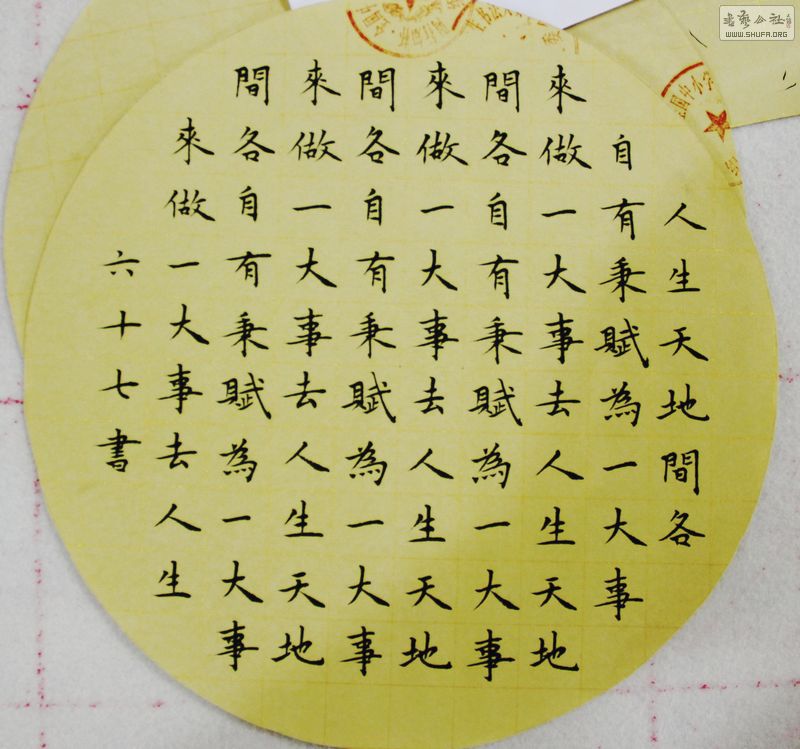 人生天地間各
自有秉賦為一大事
來做一大事去人生天地
間各自有秉賦為一大事
來做一大事去人生天地
間各自有秉賦為一大事
來做一大事去人生天地
間各自有秉賦為一大事
來做一大事去人生
六十七書
書藝公社
WWW.SHUFA.ORG